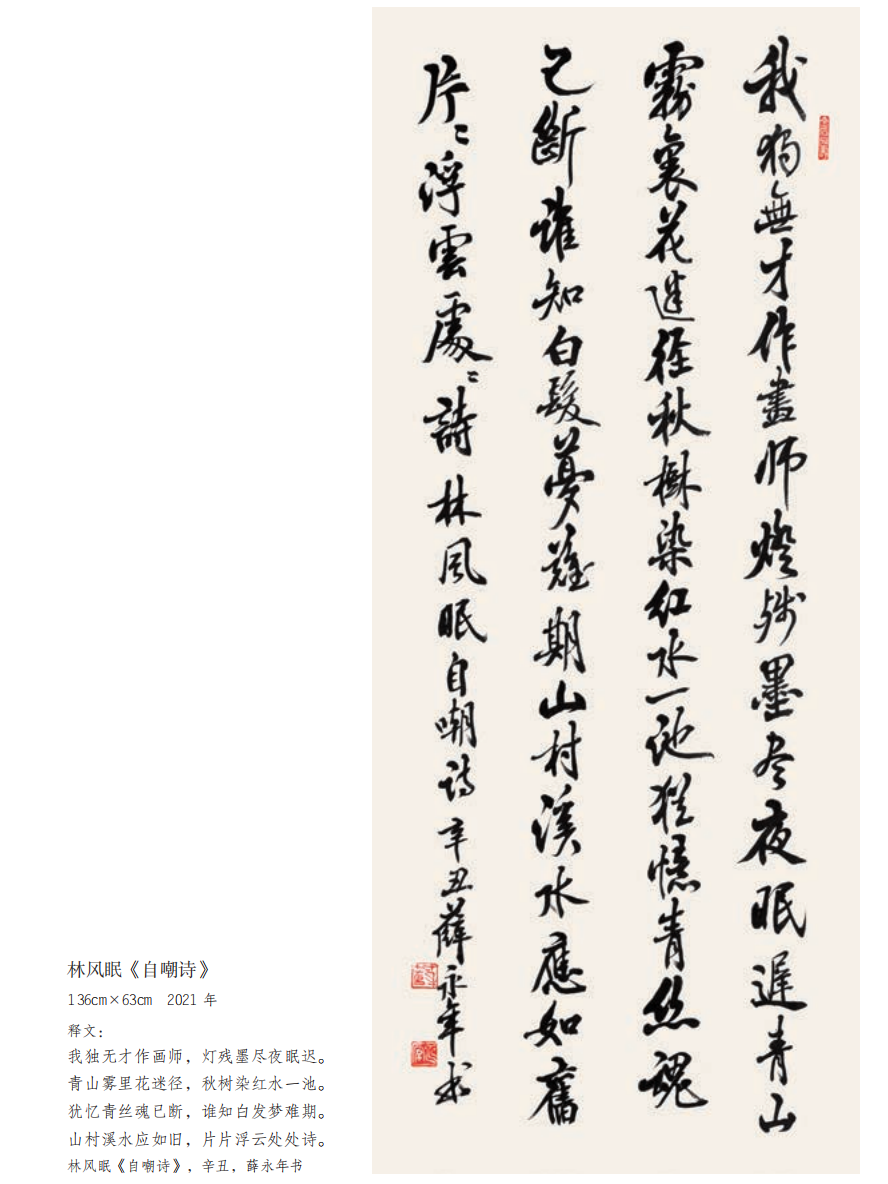 我獨無才作畫师燈殘墨尽夜眠遲青山
霧裏花迷徑秋樹染紅水一池猶憶青絲魂
已斷誰知白髮夢難期山村溪水應如舊
片〻浮雲處〻詩林風眠自嘲诗辛丑薛永年书
林风眠《自嘲诗》
136cm×63cm 2021 年
释文：
我独无才作画师，灯残墨尽夜眠迟。
青山雾里花迷径，秋树染红水一池。
犹忆青丝魂已断，谁知白发梦难期。
山村溪水应如旧，片片浮云处处诗。
林风眠《自嘲诗》，辛丑，薛永年书